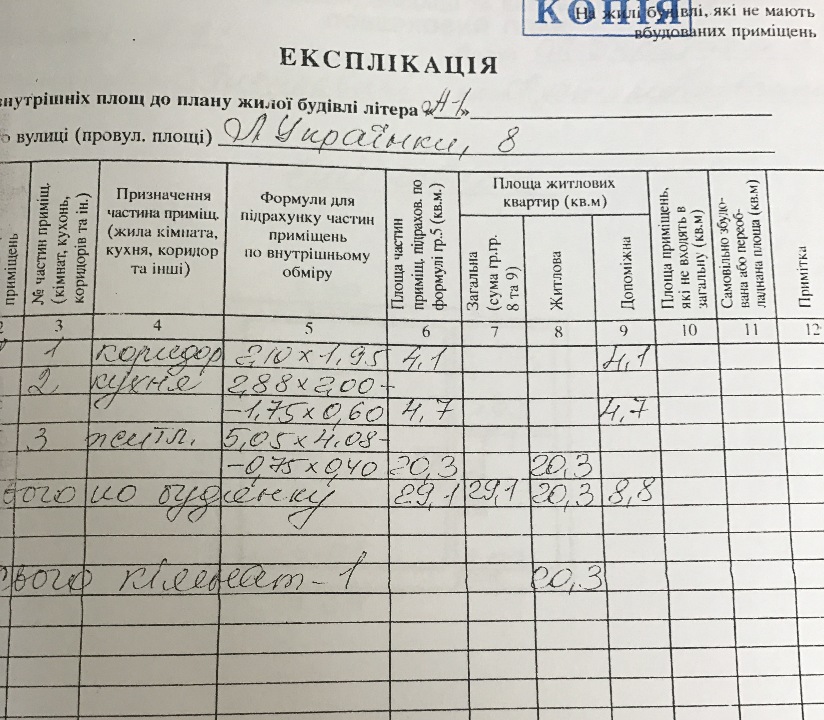 КОПІЯ
На жилі будівлі, які не мають
вбудованих приміщень
ЕКСПЛІКАЦІЯ
внутрішніх площ до плану жилої будівлі літера «А-1»
по вулиці (провул. площі) Л Українки, 8
приміщень
№ частин приміщ. (кімнат, кухонь, коридорів та ін.)
Призначення частина приміщ. (жила кімната, кухня, коридор та інші)
Формули для підрахунку частин приміщень по внутрішньому обміру
Площа частин приміщ. підрахов. по формулі гр.5 (кв.м.)
Площа житлових квартир (кв.м)
Загальна (сума гр.гр. 8 та 9)
Житлова
Допоміжна
Площа приміщень, які не входять в загальну (кв.м)
Самовільно збудована або переобладнана площа (кв.м)
Примітка
2 3 4 5 6 7 8 9 10 11 12
1 коридор 2,10 x 1,95 4,1 4,1
2 кухня 2,88 x 2,00 -
-1,75 x 0,60 4,7 4,7
3 житл. 5,05 x 4,08 -
-0,75 x 0,40 20,3 20,3
ього по будинку 29,1 29,1 20,3 8,8
ього кімнат - 1 20,3